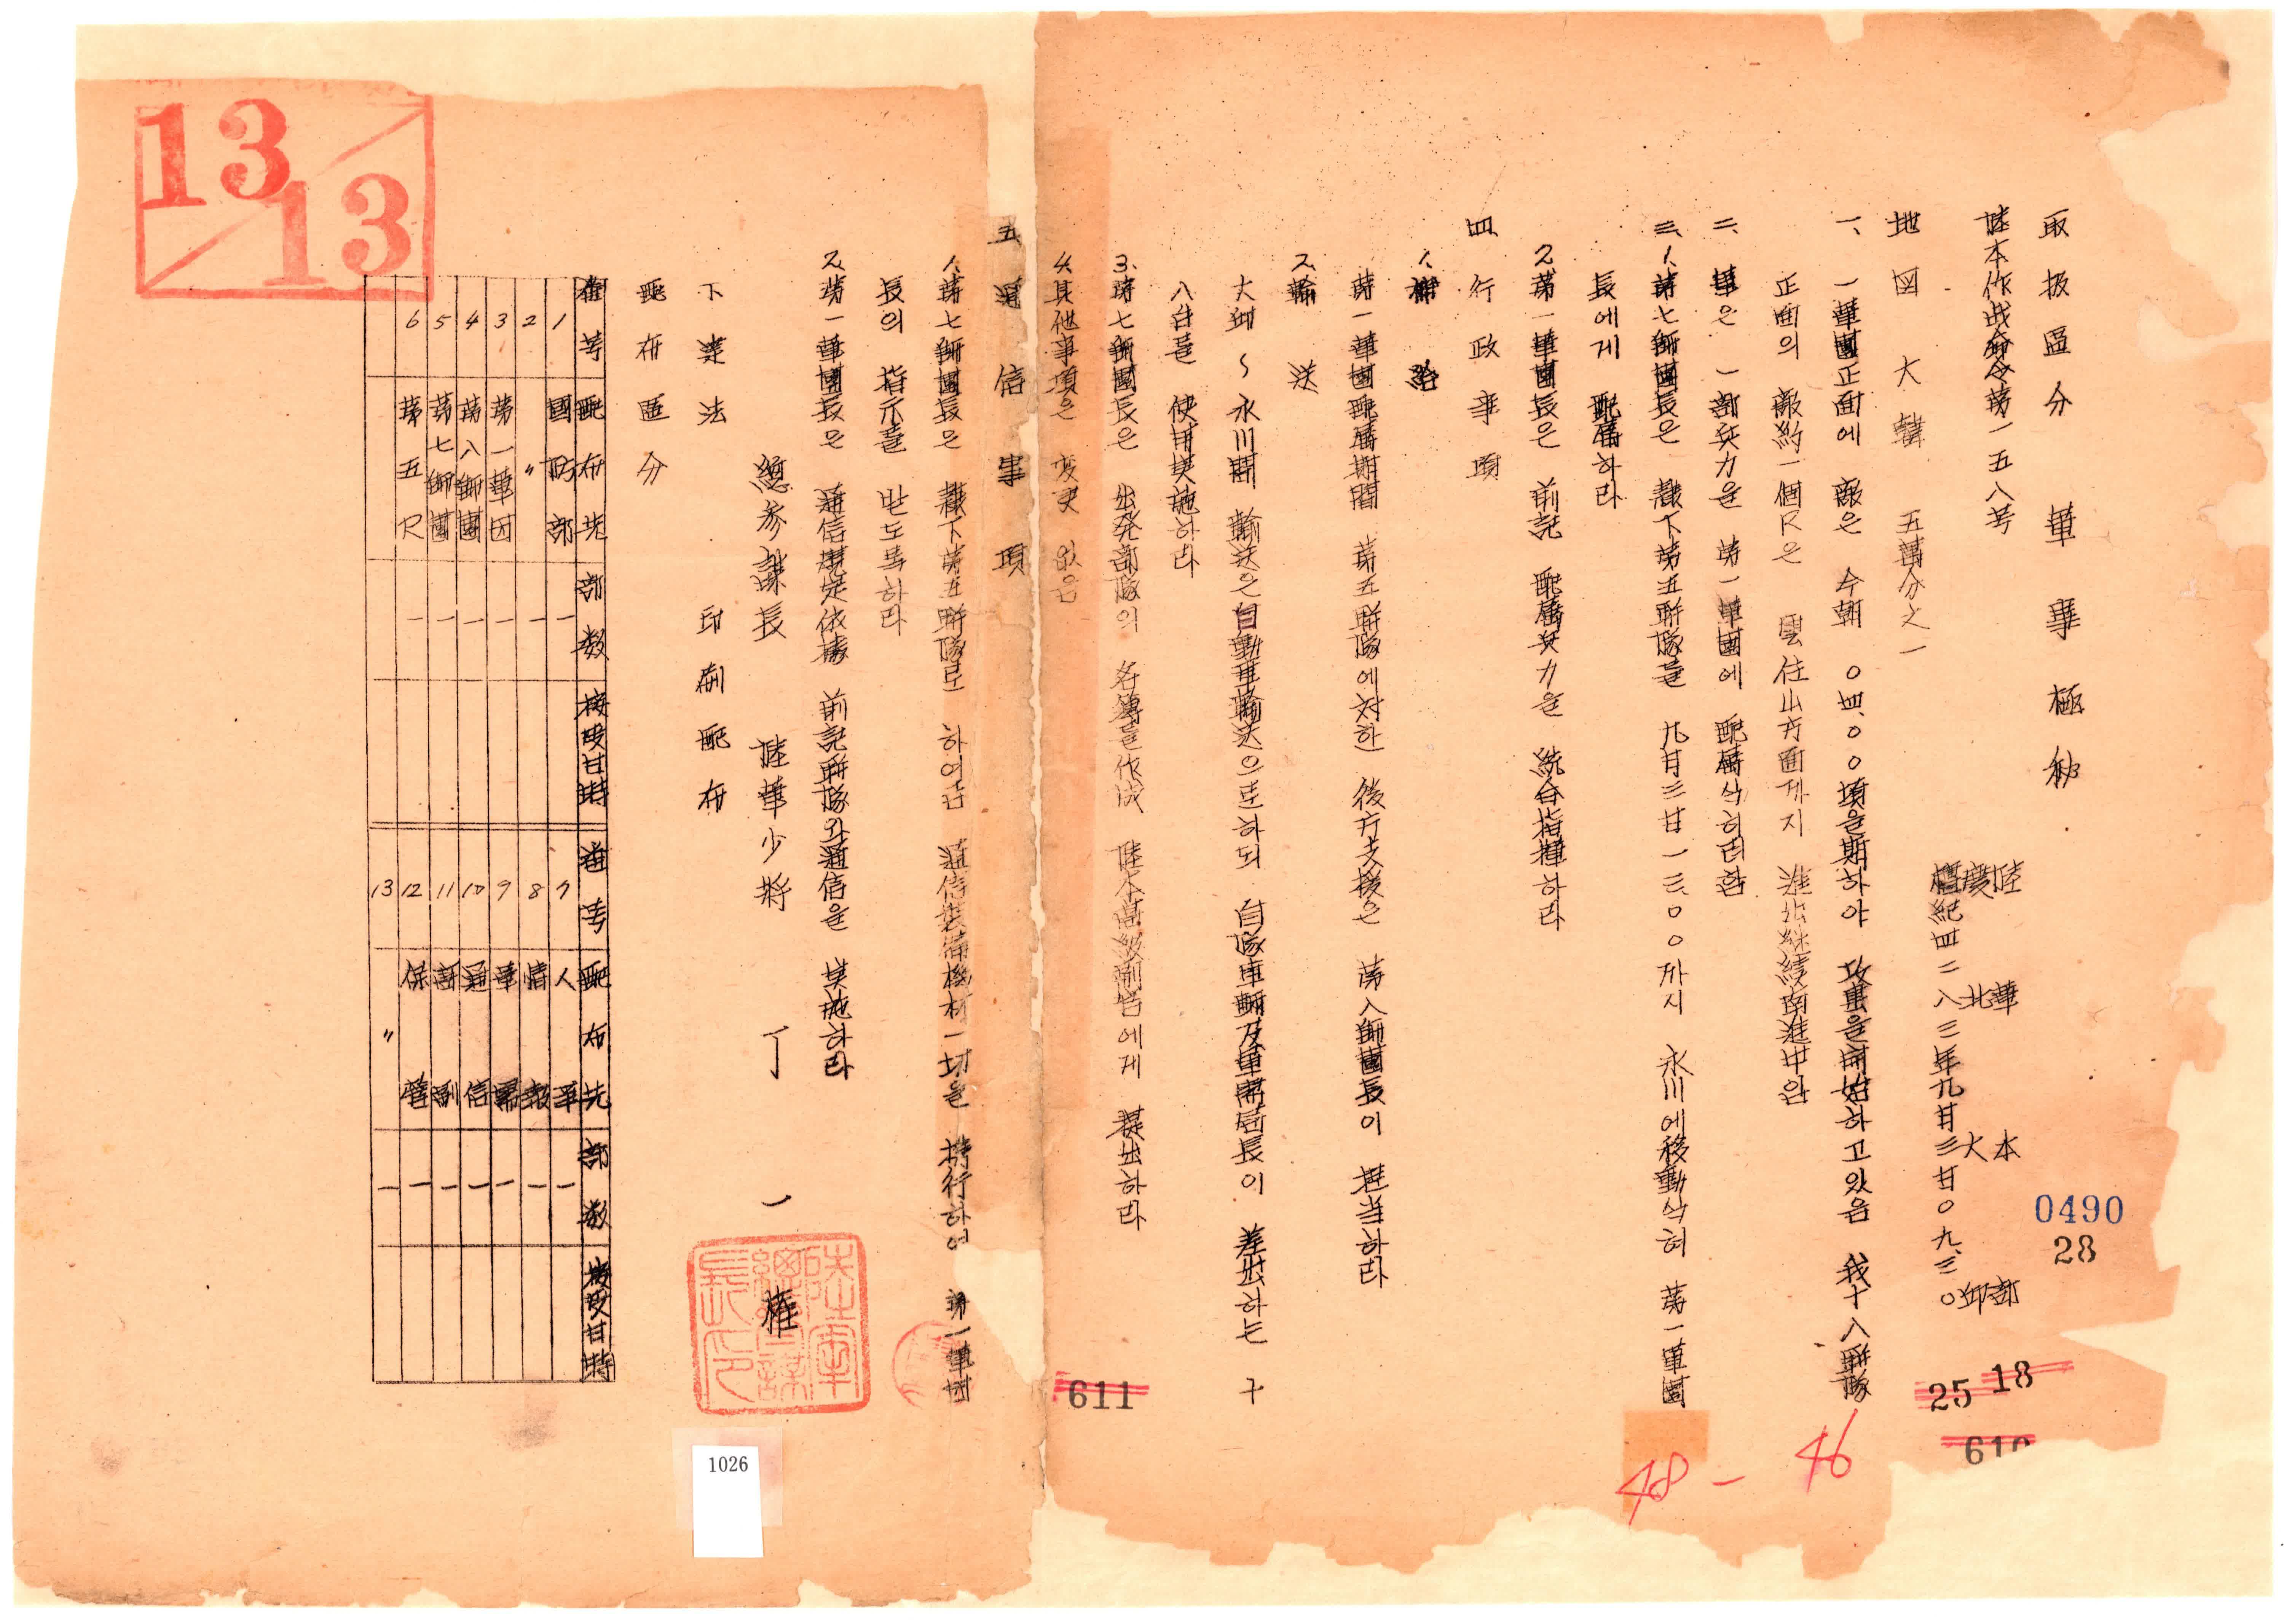 取扱區分 軍事極秘
陸本作战命令第一五八号
陸軍本部
慶北大邱
檀紀四二八三年九月三日〇九三〇
地図 大韓 五萬分之一
一、一軍團正面에 敵은 今朝 〇四〇〇頃을期하야 攻擊을開始하고있음 我十八聯隊
正面의 敵約一個R은 雲住山方面까지 進出継續南進中임
二、軍은 一部兵力을 第一軍團에 配属식히려함
三、1、第七師團長은 隷下第五聯隊를 九月三日一三〇〇까지 永川에移動식혀 第一軍團
長에게 配属하라
2、第一軍團長은 前記 配属兵力을 統合指揮하라
四、行政事項
1、補給
第一軍團配属期間 第五聯隊에対한 後方支援은 第八師團長이 担当하라
2、輸送
大邱～永川間 輸送은自動車輸送으로하되 自隊車輛及軍需局長이 差出하는 十
八台를 使用実施하라
3、第七師團長은 出発部隊의 名簿를作成 陸本高級副官에게 提出하라
4、其他事項은 変更 없음
五、通信事項
1、第七師團長은 隷下第五聯隊로 하여금 通信装備機材一切을 携行하여 第一軍団
長의 指示를 받도록하라
2、第一軍團長은 通信規定依據 前記聯隊와通信을 実施하라
總参謀長 陸軍少將 丁一權
陸軍總参謀長印
下達法 印刷配布
配布區分
番号 配布先 部数 接受日時 番号 配布先 部数 接受日時
1 國防部 一 7 人事 一
2 〃 一 8 情報 一
3 第一軍団 一 9 軍需 一
4 第八師團 一 10 通信 一
5 第七師團 一 11 高副 一
6 第五R 一 12 保管 一
13 〃 一
13/13
0490
28
25 18
610
611
48 - 46
1026